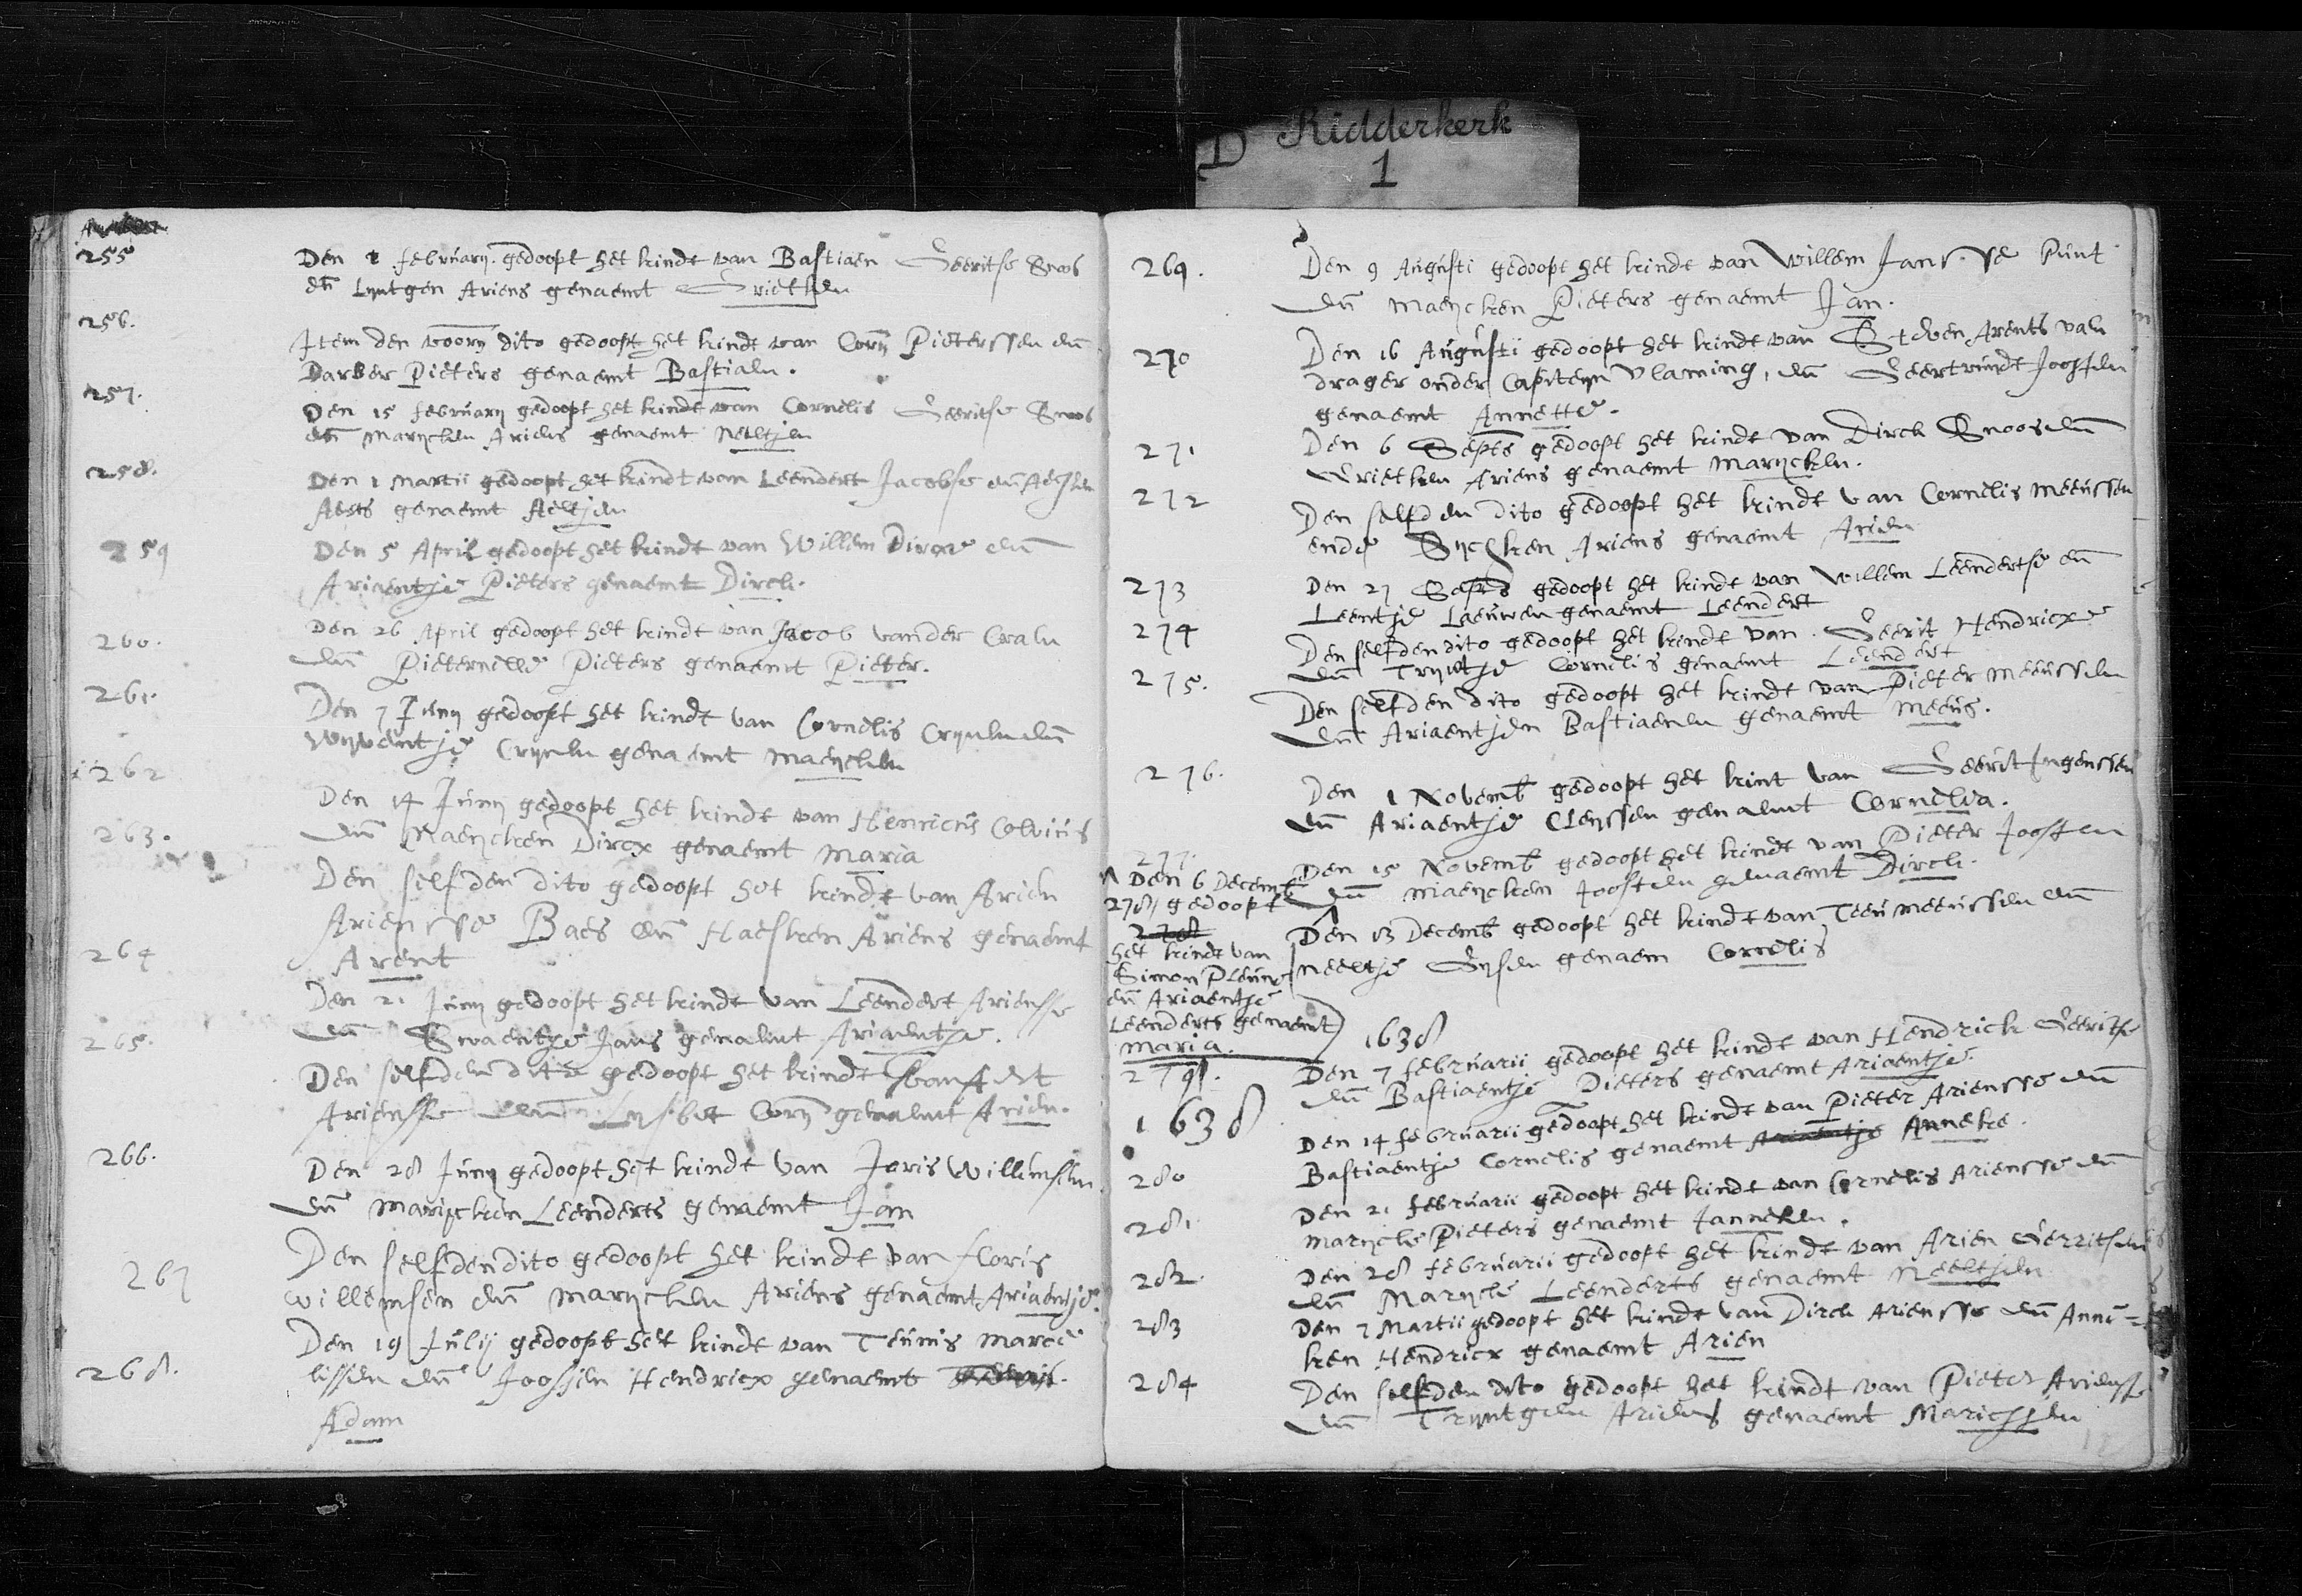 D Ridderkerk
1
255
Den 1 februarij gedoopt het kindt van Bastiaen Geeritse Snoos
eñ Lyntgen Ariens genaemt Grietken
256.
Item den voorn dito gedoopt het kindt van Corn Pieterssen eñ
Barber Pieters genaemt Bastiaen.
257.
Den 15 februarij gedoopt het kindt van Cornelis Geeritse Snoos
eñ Marijcken Ariens genaemt Neeltjen
258.
Den 1 Martii gedoopt het kindt van Leendert Jacobse eñ
Aerts genaemt Aeltjen
259
Den 5 April gedoopt het kindt van Willem Dircxe eñ
Ariaentje Pieters genaemt Dirck.
260.
Den 26 April gedoopt het kindt van Jacob vander Craen
eñ Pieternelle Pieters genaemt Pieter.
261.
Den 7 Junij gedoopt het kindt van Cornelis Crijnen eñ
Wyventje Crijnen genaemt Maeijcken
262
Den 14 Junij gedoopt het kindt van Henricus Colvius
eñ Maeijcken Dircx genaemt Maria
263.
Den selfden dito gedoopt het kindt van Arien
Ariensse Baes eñ Haesken Ariens genaemt
Arent
264
Den 21 Junij gedoopt het kindt van Leendert Ariensse
eñ Swaentje Jans genaemt Ariaentje.
265.
Den selfden dito gedoopt het kindt van Aert
Ariensse eñ Lysbet Corn genaemt Arien.
266.
Den 28 Junij gedoopt het kindt van Joris Willemsen
eñ Marijcken Leenderts genaemt Jan
267
Den selfden dito gedoopt het kindt van floris
willemsen eñ Marijcken Ariens genaemt Ariaentje.
268.
Den 19 Julij gedoopt het kindt van Teunis Marce
lissen eñ Joosjen Hendricx genaemt
Adam
269.
Den 9 Augusti gedoopt het kindt van Willem Jansse Punt
eñ Maeijcken Pieters genaemt Jan.
270
Den 16 Augustii gedoopt het kindt van Steven Arents vaen
drager onder Capiteijn Vlaming, eñ Geertruindt Joosten
genaemt Annette.
271
Den 6 Septs gedoopt het kindt van Dirck Snoos eñ
Grietken Ariens genaemt Marijcken.
272
Den selfden dito gedoopt het kindt van Cornelis Meeussen
ende Sijcken Ariens genaemt Arien
273
Den 27 Septs gedoopt het kindt van Willem Leendertse eñ
Leentje Laeuwen genaemt Leendert
274
Den selfden dito gedoopt het kindt van Geerit Hendricxe
eñ Trijntje Cornelis genaemt Leendert
275.
Den selfden dito gedoopt het kindt van Pieter Meeussen
eñ Ariaentjen Bastiaenen genaemt Meeus.
276.
Den 1 Novemb gedoopt het kint van Geerit Ingenssen
eñ Ariaentje Cleyssen genaemt Cornelia.
277.
Den 15 Novemb gedoopt het kindt van Pieter Joosten
eñ Maeijcken Joosten genaemt Dirck.
Den 6 Decemb
278 gedoopt
278
het kindt van
Simon Pleune
eñ Ariaentje
Leenderts genaemt
Maria.
Den 13 Decemb gedoopt het kindt van Teeu Meeussen eñ
Neeltje Gysen genaem Cornelis
1638
279.
Den 7 februarii gedoopt het kindt van Hendrick Geeritse
eñ Bastiaentje Pieters genaemt Ariaentje
1638
280
Den 14 februarii gedoopt het kindt van Pieter Ariensse eñ
Bastiaentje Cornelis genaemt Ariaentje Anneke.
281
Den 21 februarii gedoopt het kindt van Cornelis Ariensse eñ
Marijcke Pieters genaemt Janneken.
282
Den 28 februarii gedoopt het kindt van Arien Gerritsen
eñ Marijcke Leenderts genaemt Neeltjen
283
Den 7 Martii gedoopt het kindt van Dirck Ariensse eñ Anne=
ken Hendricx genaemt Arien
284
Den selfden dito gedoopt het kindt van Pieter Ariensse
eñ Trijntgen Ariens genaemt Maricjen